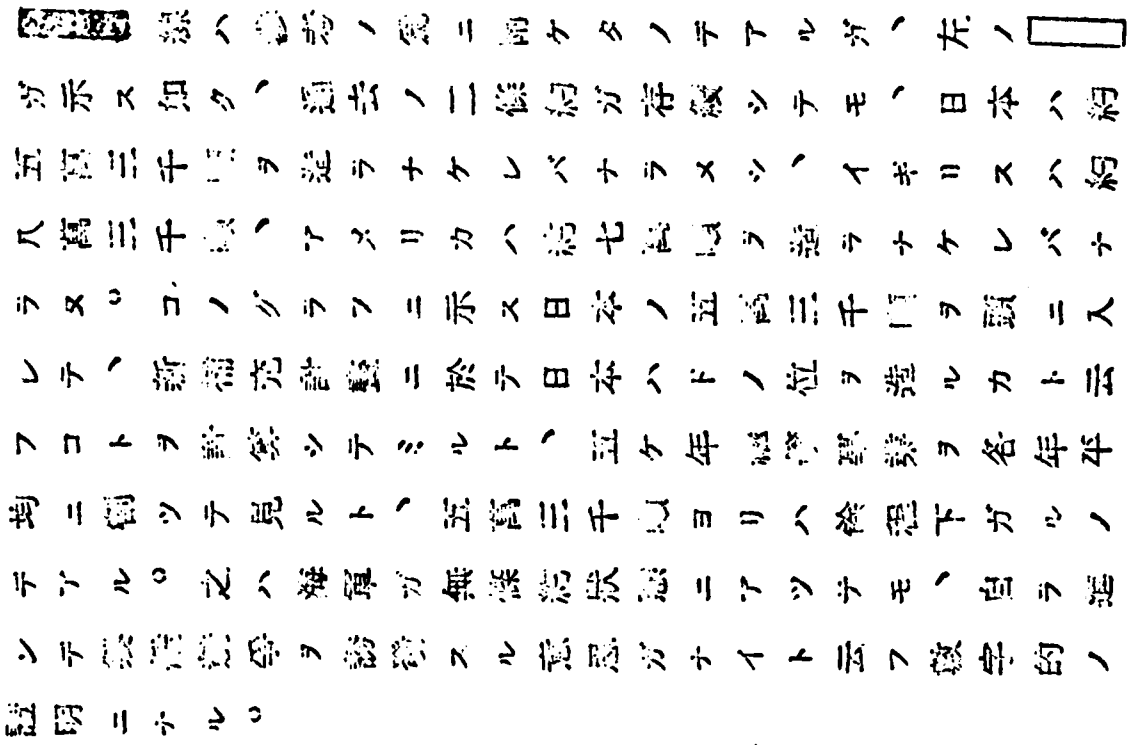 線ハ参考ノ為ニ附ケタノデアルガ、左ノ
ガ示ス如ク、過去ノ二條約ガ存続シテモ、日本ハ約
五萬三千噸ヲ造ラナケレバナラヌシ、イギリスハ約
八萬三千噸、アメリカハ約七萬噸ヲ造ラナケレバナ
ラヌ。コノグラフニ示ス日本ノ五萬三千噸ヲ頭ニ入
レテ、新補充計畫ニ於テ日本ハドノ位ヲ造ルカト云
フコトヲ計算シテミルト、五ケ年継続事業ヲ各年平
均ニ割ツテ見ルト、五萬三千噸ヨリハ餘程下ガルノ
デアル。之ハ海軍ガ無條約状態ニアツテモ、自ラ進
ンデ建造競争ヲ誘發スル意思ガナイト云フ数字的ノ
証明ニナル。